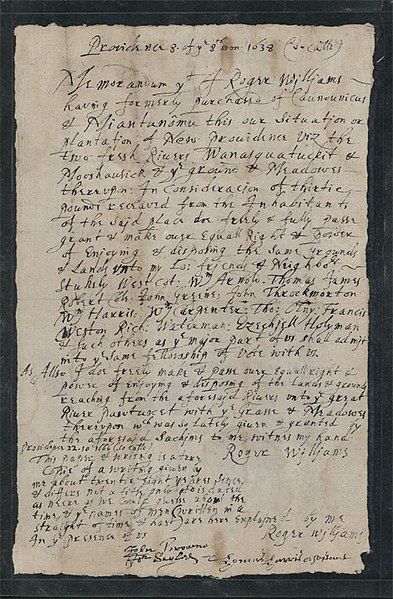 Providence 8. of ye 8th mon. 1638 (so calld)
Memorandum yt I Roger Williams
having formerly purchased of Caunounicus
& Miantunomu this our Situation or
plantation of New Providence viz the
two fresh Rivers Wanasquatuckit &
Mooshausick & ye ground & Meadowes
thereupon: In Consideracion of thirtie
pounds received from the Inhabitants
of the said place doe freely & fully passe
grant & make over equall Right & Power
of enjoying & disposing the Same Grounds
& Lands unto my Lo: friends & Neighbors
Stukely Westcot: W Arnold Thomas James
Robert Cole: John Greene: John Throckmorton
Wm Harris: Wm Carpenter: Tho: Olny: Francis
Weston Rich: Waterman: Ezechiell Holyman
& such others as ye major part of us shall admit
into ye same fellowship of Vote with us.
As Also I doe freely make & passe over equall right &
power of enjoying & disposing of the Lands & grounds
reaching from the aforesaid Rivers unto ye great
River Pawtuxet with ye Grasse & Meadowes
thereupon wch was so lately given & granted by
the aforesayd Sachims to me, witnes my hand
Roger Williams
Providence 22. 10. 1666 (so calld)
This paper & writing is a true
Copie of a writing given by
me about twentie eight yeares since,
& differs not a title, only
as neere as we could guesse about the
time, & ye names of men written in a
straight of time & hast are here explained by me
Roger Williams
In ye presence of us
John Browne
John Sayles
Thomas Harris